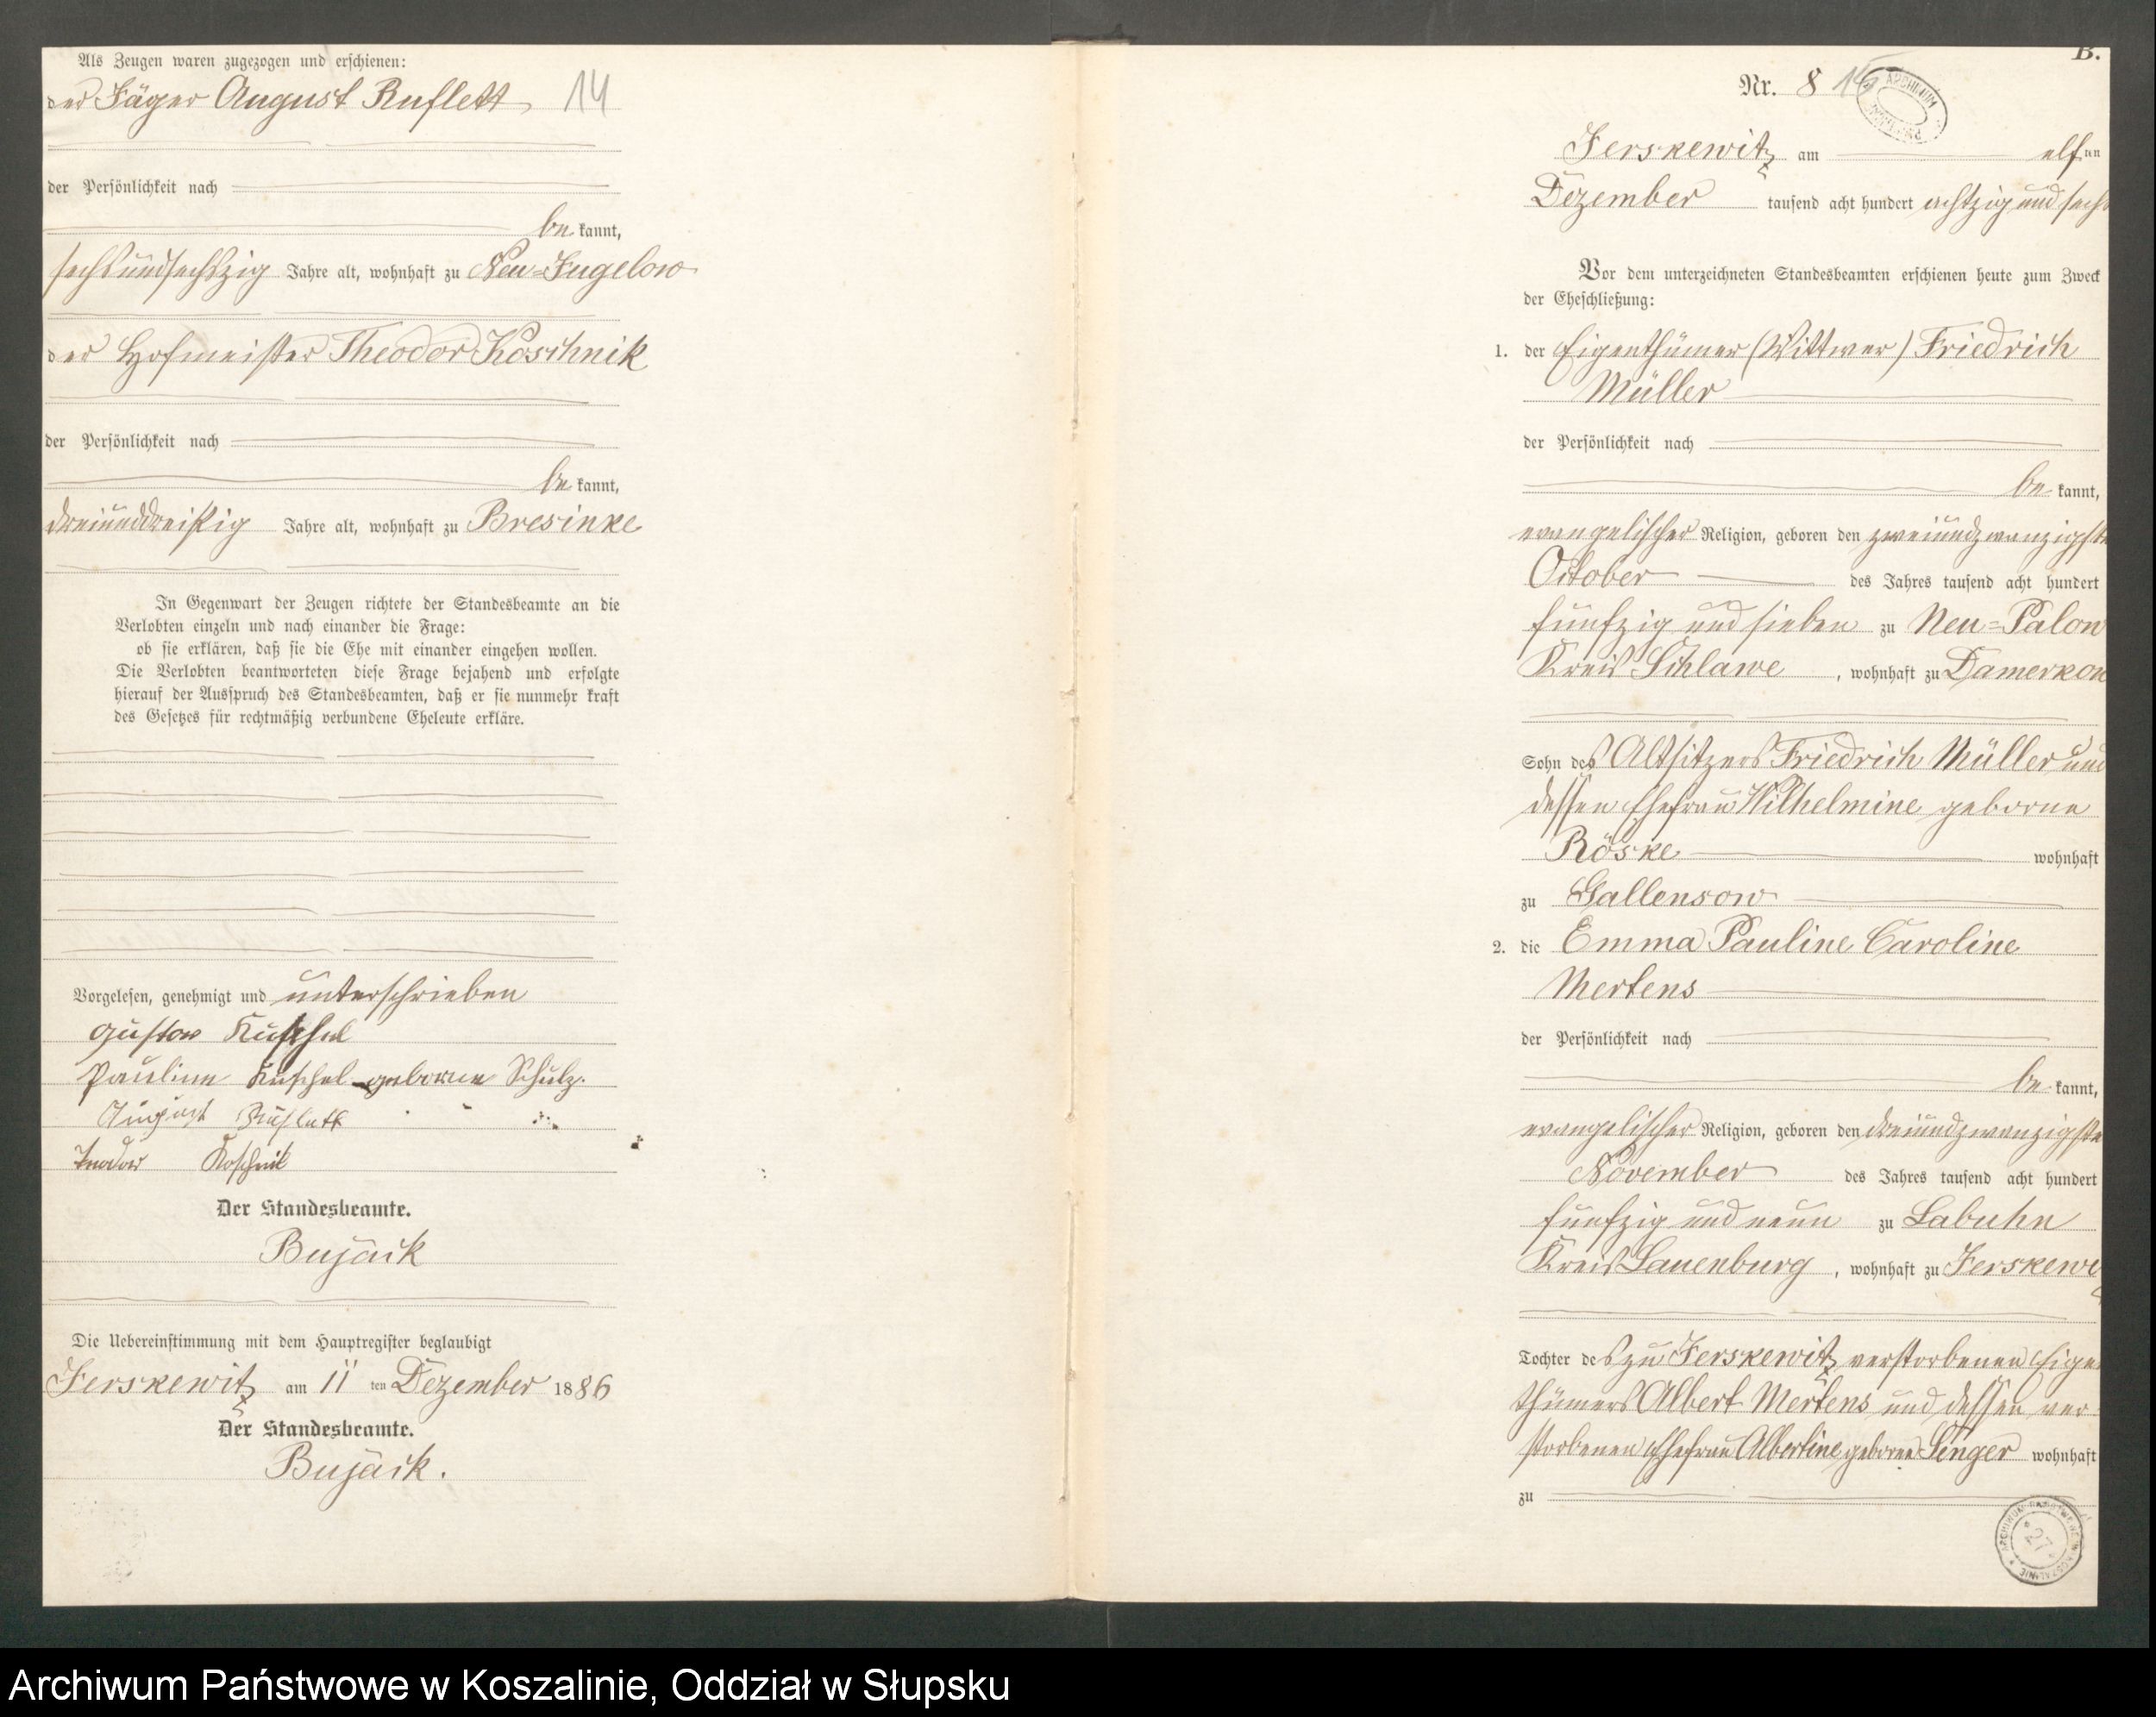 Als Zeugen waren zugezogen und erschienen:
der Jäger August Ruflett 14
der Persönlichkeit nach
be kannt,
sechsundsechszig Jahre alt, wohnhaft zu Neu=Jugelow
der Hofmeister Theodor Koschnik
der Persönlichkeit nach
be kannt,
dreiunddreißig Jahre alt, wohnhaft zu Bresinke
In Gegenwart der Zeugen richtete der Standesbeamte an die
Verlobten einzeln und nach einander die Frage:
ob sie erklären, daß sie die Ehe mit einander eingehen wollen.
Die Verlobten beantworteten diese Frage bejahend und erfolgte
hierauf der Ausspruch des Standesbeamten, daß er sie nunmehr kraft
des Gesetzes für rechtmäßig verbundene Eheleute erkläre.
Vorgelesen, genehmigt und unterschrieben
Gustav Kuschel
Pauline Kuschel geborne Schulz.
August Ruflett
Teodor Koschnik
Der Standesbeamte.
Bujack
Die Uebereinstimmung mit dem Hauptregister beglaubigt
Jerskewitz am 11 ten Dezember 1886
Der Standesbeamte.
Bujack.
B.
Nr. 8
Jerskewitz am elften
Dezember tausend acht hundert achtzig und sechs
Vor dem unterzeichneten Standesbeamten erschienen heute zum Zweck
der Eheschließung:
1. der Eigenthümer (Wittwer) Friedrich
Müller
der Persönlichkeit nach
be kannt,
evangelischer Religion, geboren den zweiundzwanzigste
October des Jahres tausend acht hundert
fünfzig und sieben zu Neu=Palow
Kreis Schlawe, wohnhaft zu Damerkow
Sohn des Altsitzers Friedrich Müller und
dessen Ehefrau Wilhelmine geborne
Röske wohnhaft
zu Gallensow
2. die Emma Pauline Caroline
Mertens
der Persönlichkeit nach
be kannt,
evangelischer Religion, geboren den dreiundzwanzigste
November des Jahres tausend acht hundert
fünfzig und neun zu Labuhn
Kreis Lauenburg, wohnhaft zu Jerskewitz
Tochter des zu Jerskewitz verstorbenen Eigen
thümers Albert Mertens und dessen ver
storbenen Ehefrau Albertine geborne Senger wohnhaft
zu
27
Archiwum Państwowe w Koszalinie, Oddział w Słupsku